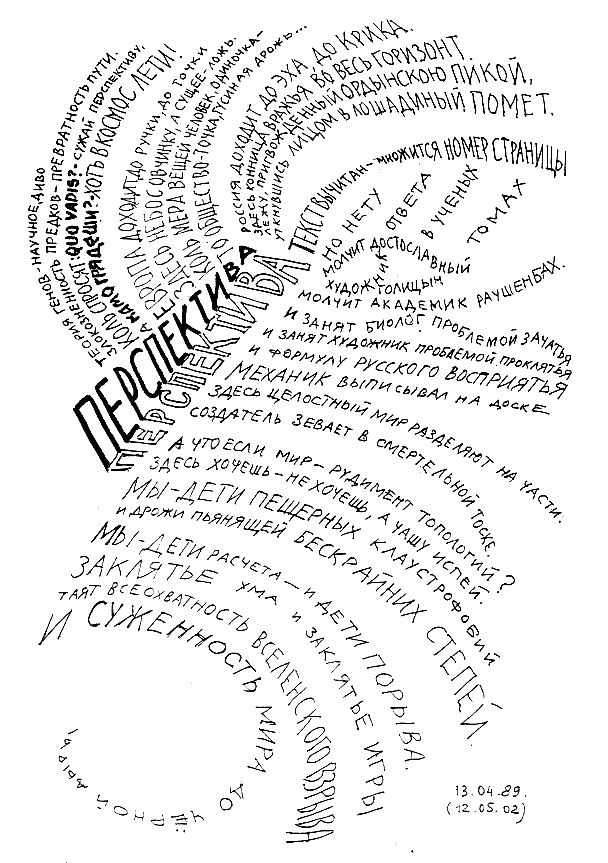 ПЕРСПЕКТИВА
ПЕРСПЕКТИВА
ТЕОРИЯ ГЕНОВ - НАУЧНОЕ ДИВО
ЗЛОКОЗНЕННОСТЬ ПРЕДКОВ - ПРЕВРАТНОСТЬ ПУТИ.
КОЛЬ СПРОСЯТ: QUO VADIS? - СУЖАЙ ПЕРСПЕКТИВУ,
А КАМО ГРЯДЕШИ? - ХОТЬ В КОСМОС ЛЕТИ!
ЕВРОПА ДОХОДИТ ДО РУЧКИ, ДО ТОЧКИ
ЗДЕСЬ НЕБО С ОВЧИНКУ, А СУЩЕЕ - ЛОЖЬ.
КОЛЬ МЕРА ВЕЩЕЙ ЧЕЛОВЕК, ОДИНОЧКА -
ТО ОБЩЕСТВО - ТОЧКА, ГУСИНАЯ ДРОЖЬ...
РОССИЯ ДОХОДИТ ДО ЭХА ДО КРИКА.
ЗДЕСЬ КОННИЦА ВРАЖЬЯ ВО ВЕСЬ ГОРИЗОНТ.
ЛЕЖУ, ПРИГВОЖДЕННЫЙ ОРДЫНСКОЮ ПИКОЙ,
УТКНУВШИСЬ ЛИЦОМ В ЛОШАДИНЫЙ ПОМЕТ.
ТЕКСТ ВЫЧИТАН - МНОЖИТСЯ НОМЕР СТРАНИЦЫ
НО НЕТУ ОТВЕТА В УЧЕНЫХ ТОМАХ
МОЛЧИТ ДОСТОСЛАВНЫЙ ХУДОЖНИК ГОЛИЦЫН
МОЛЧИТ АКАДЕМИК РАУШЕНБАХ.
И ЗАНЯТ БИОЛОГ ПРОБЛЕМОЙ ЗАЧАТЬЯ
И ЗАНЯТ ХУДОЖНИК ПРОБЛЕМОЙ ПРОКЛЯТЬЯ
И ФОРМУЛУ РУССКОГО ВОСПРИЯТЬЯ
МЕХАНИК ВЫПИСЫВАЛ НА ДОСКЕ
ЗДЕСЬ ЦЕЛОСТНЫЙ МИР РАЗДЕЛЯЮТ НА ЧАСТИ.
СОЗДАТЕЛЬ ЗЕВАЕТ В СМЕРТЕЛЬНОЙ ТОСКЕ.
А ЧТО ЕСЛИ МИР - РУДИМЕНТ ТОПОЛОГИЙ?
ЗДЕСЬ ХОЧЕШЬ - НЕ ХОЧЕШЬ, А ЧАШУ ИСПЕЙ.
МЫ - ДЕТИ ПЕЩЕРНЫХ КЛАУСТРОФОБИЙ
И ДРОЖИ ПЬЯНЯЩЕЙ БЕСКРАЙНИХ СТЕПЕЙ.
МЫ - ДЕТИ РАСЧЕТА - И ДЕТИ ПОРЫВА.
ЗАКЛЯТЬЕ УМА И ЗАКЛЯТЬЕ ИГРЫ
ТАЯТ ВСЕОХВАТНОСТЬ ВСЕЛЕНСКОГО ВЗРЫВА
И СУЖЕННОСТЬ МИРА ДО ЧЁРНОЙ ДЫРЫ.
13.04.89.
(12.05.02)